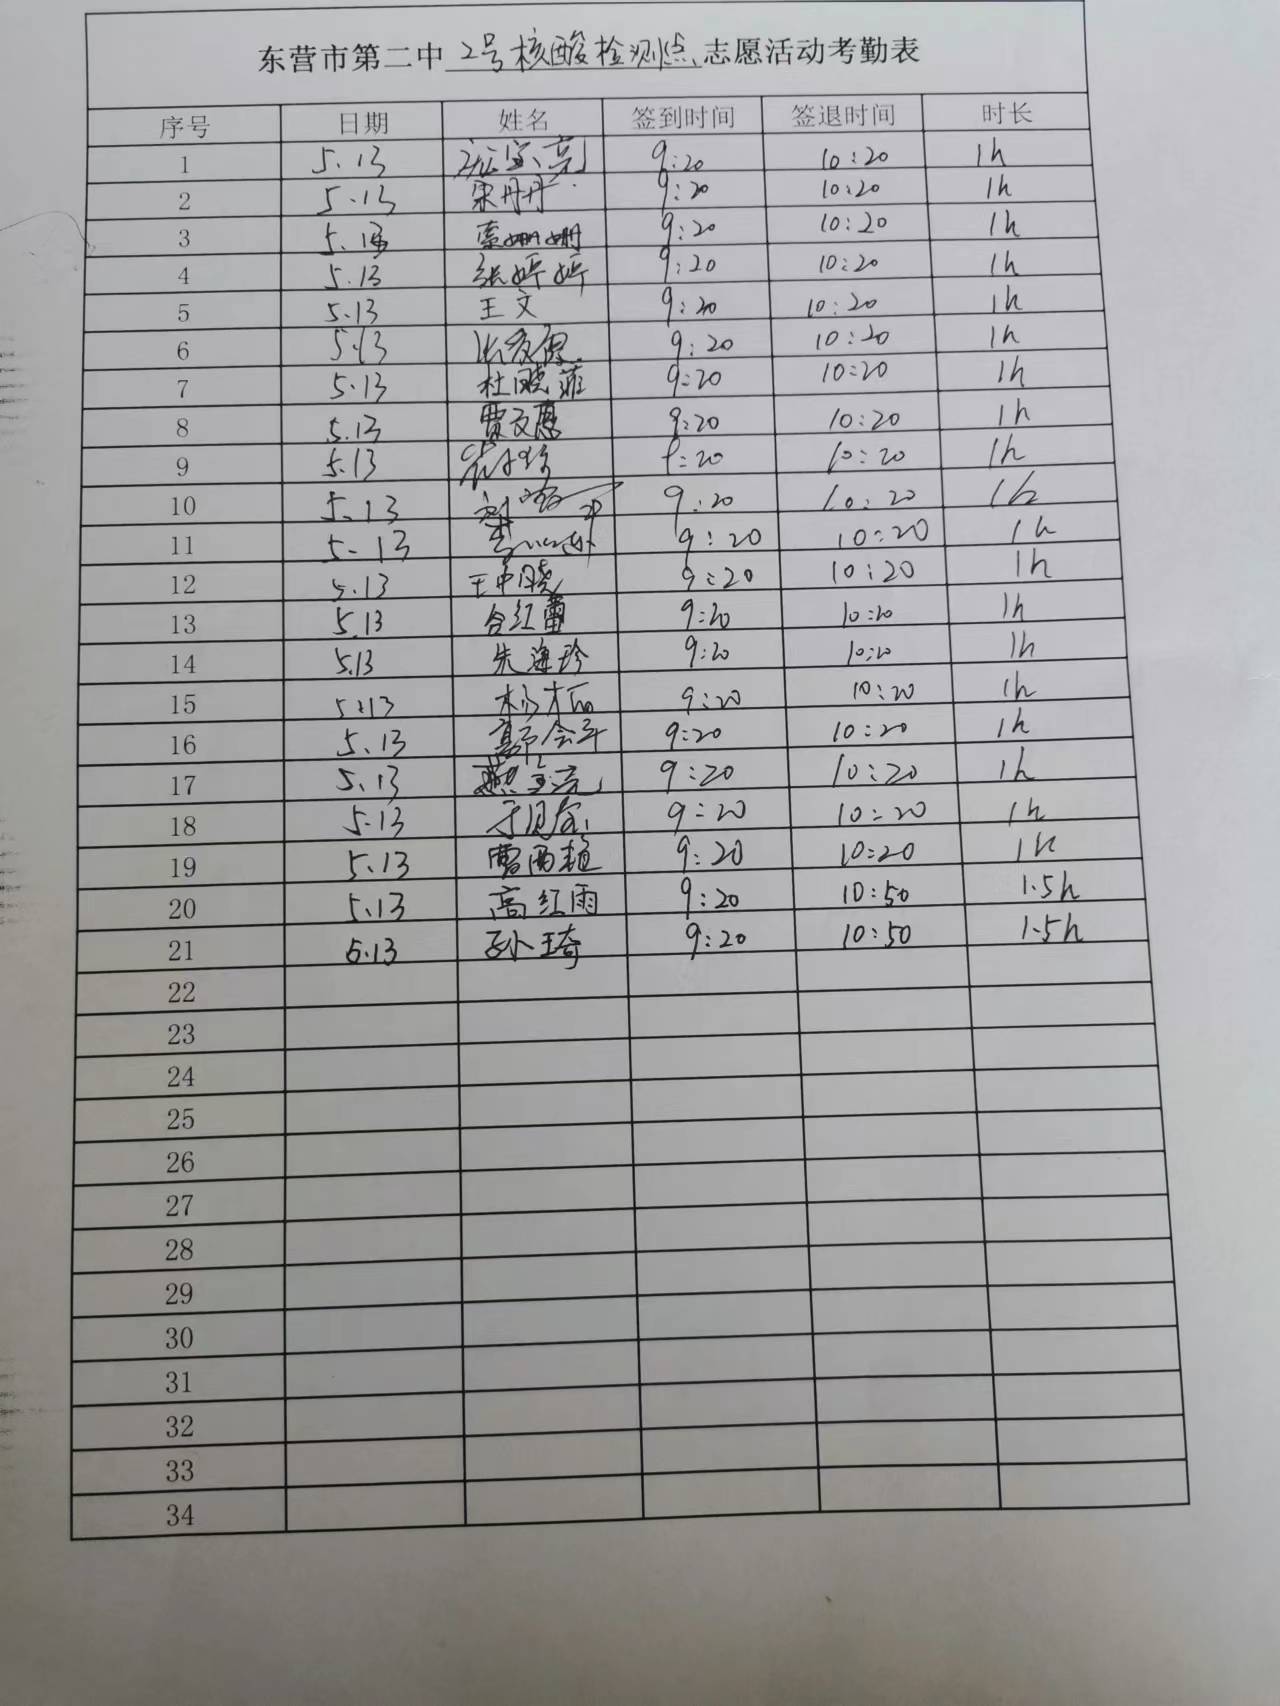 东营市第二中2号核酸检测点志愿活动考勤表
序号 日期 姓名 签到时间 签退时间 时长
1 5.13 9:20 10:20 1h
2 5.13 宋丹丹 9:20 10:20 1h
3 5.13 9:20 10:20 1h
4 5.13 张婷婷 9:20 10:20 1h
5 5.13 王文 9:20 10:20 1h
6 5.13 9:20 10:20 1h
7 5.13 杜晓菲 9:20 10:20 1h
8 5.13 9:20 10:20 1h
9 5.13 9:20 10:20 1h
10 5.13 9:20 10:20 1h
11 5.13 9:20 10:20 1h
12 5.13 9:20 10:20 1h
13 5.13 9:20 10:20 1h
14 5.13 9:20 10:20 1h
15 5.13 9:20 10:20 1h
16 5.13 9:20 10:20 1h
17 5.13 9:20 10:20 1h
18 5.13 9:20 10:20 1h
19 5.13 9:20 10:20 1h
20 5.13 高红雨 9:20 10:50 1.5h
21 5.13 孙琦 9:20 10:50 1.5h
22
23
24
25
26
27
28
29
30
31
32
33
34